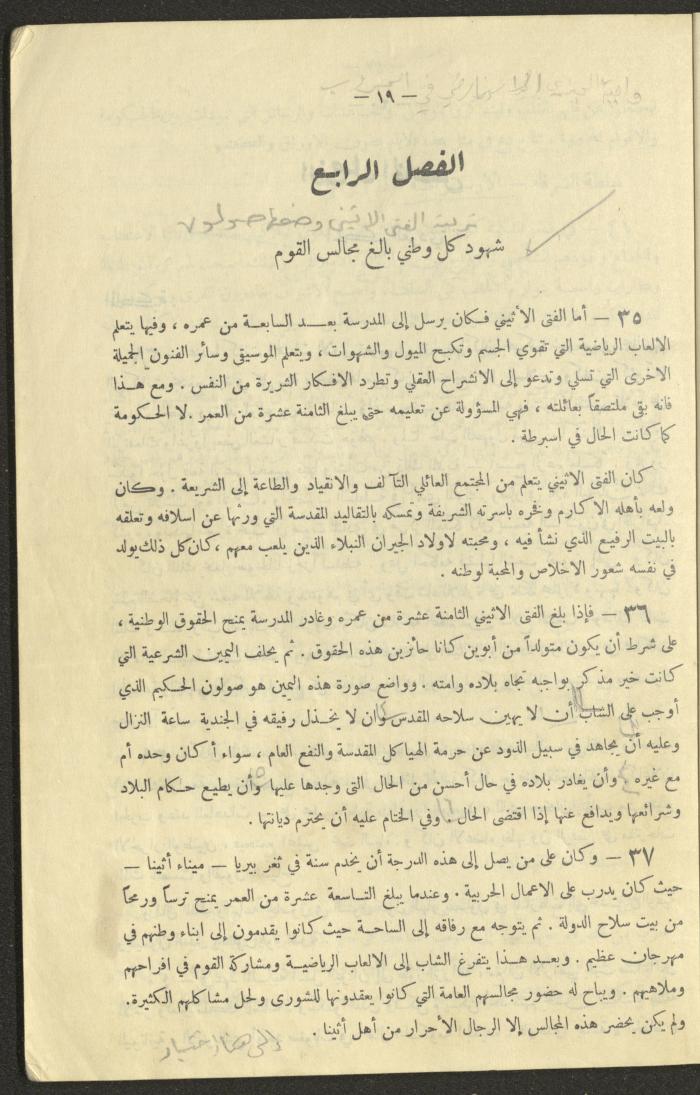 واجبات الجندي الاسبارطي في الحرب
— ١٩ —
الفصل الرابع
تربية الفتى الاثيني وضعها صولون
شهود كل وطني بالغ مجالس القوم
٣٥ — أما الفتى الأثيني فكان يرسل إلى المدرسة بعد السابعة من عمره ، وفيها يتعلم
الالعاب الرياضية التي تقوي الجسم وتكبح الميول والشهوات ، ويتعلم الموسيقى وسائر الفنون الجميلة
الاخرى التي تسلي وتدعو إلى الانشراح العقلي وتطرد الافكار الشريرة من النفس . ومع هذا
فانه بقي ملتصقاً بعائلته ، فهي المسؤولة عن تعليمه حتى يبلغ الثامنة عشرة من العمر . لا الحكومة
كما كانت الحال في اسبرطة .
كان الفتى الاثيني يتعلم من المجتمع العائلي التآلف والانقياد والطاعة إلى الشريعة . وكان
ولعه بأهله الاكارم وفخره باسرته الشريفة وتمسكه بالتقاليد المقدسة التي ورثها عن اسلافه وتعلقه
بالبيت الرفيع الذي نشأ فيه ، ومحبته لاولاد الجيران النبلاء الذين يلعب معهم ، كان كل ذلك يولد
في نفسه شعور الاخلاص والمحبة لوطنه .
٣٦ — فإذا بلغ الفتى الاثيني الثامنة عشرة من عمره وغادر المدرسة يمنح الحقوق الوطنية ،
على شرط أن يكون متولداً من أبوين كانا حائزين هذه الحقوق . ثم يحلف اليمين الشرعية التي
كانت خير مذكر بواجبه تجاه بلاده وامته . وواضع صورة هذه اليمين هو صولون الحكيم الذي
أوجب على الشاب أن لا يهين سلاحه المقدس وان لا يخذل رفيقه في الجندية ساعة النزال
وعليه أن يجاهد في سبيل الذود عن حرمة الهياكل المقدسة والنفع العام ، سواء أكان وحده أم
مع غيره . وأن يغادر بلاده في حال أحسن من الحال التي وجدها عليها وأن يطيع حكام البلاد
وشرائعها ويدافع عنها إذا اقتضى الحال . وفي الختام عليه أن يحترم ديانتها .
٣٧ — وكان على من يصل إلى هذه الدرجة أن يخدم سنة في ثغر بيريا — ميناء أثينا —
حيث كان يدرب على الاعمال الحربية . وعندما يبلغ التاسعة عشرة من العمر يمنح ترساً ورمحاً
من بيت سلاح الدولة . ثم يتوجه مع رفاقه إلى الساحة حيث كانوا يقدمون إلى ابناء وطنهم في
مهرجان عظيم . وبعد هذا يتفرغ الشاب إلى الالعاب الرياضية ومشاركة القوم في افراحهم
وملاهيهم . ويباح له حضور مجالسهم العامة التي كانوا يعقدونها للشورى ولحل مشاكلهم الكثيرة.
ولم يكن يحضر هذه المجالس إلا الرجال الأحرار من أهل أثينا .
إلى هنا اختيار